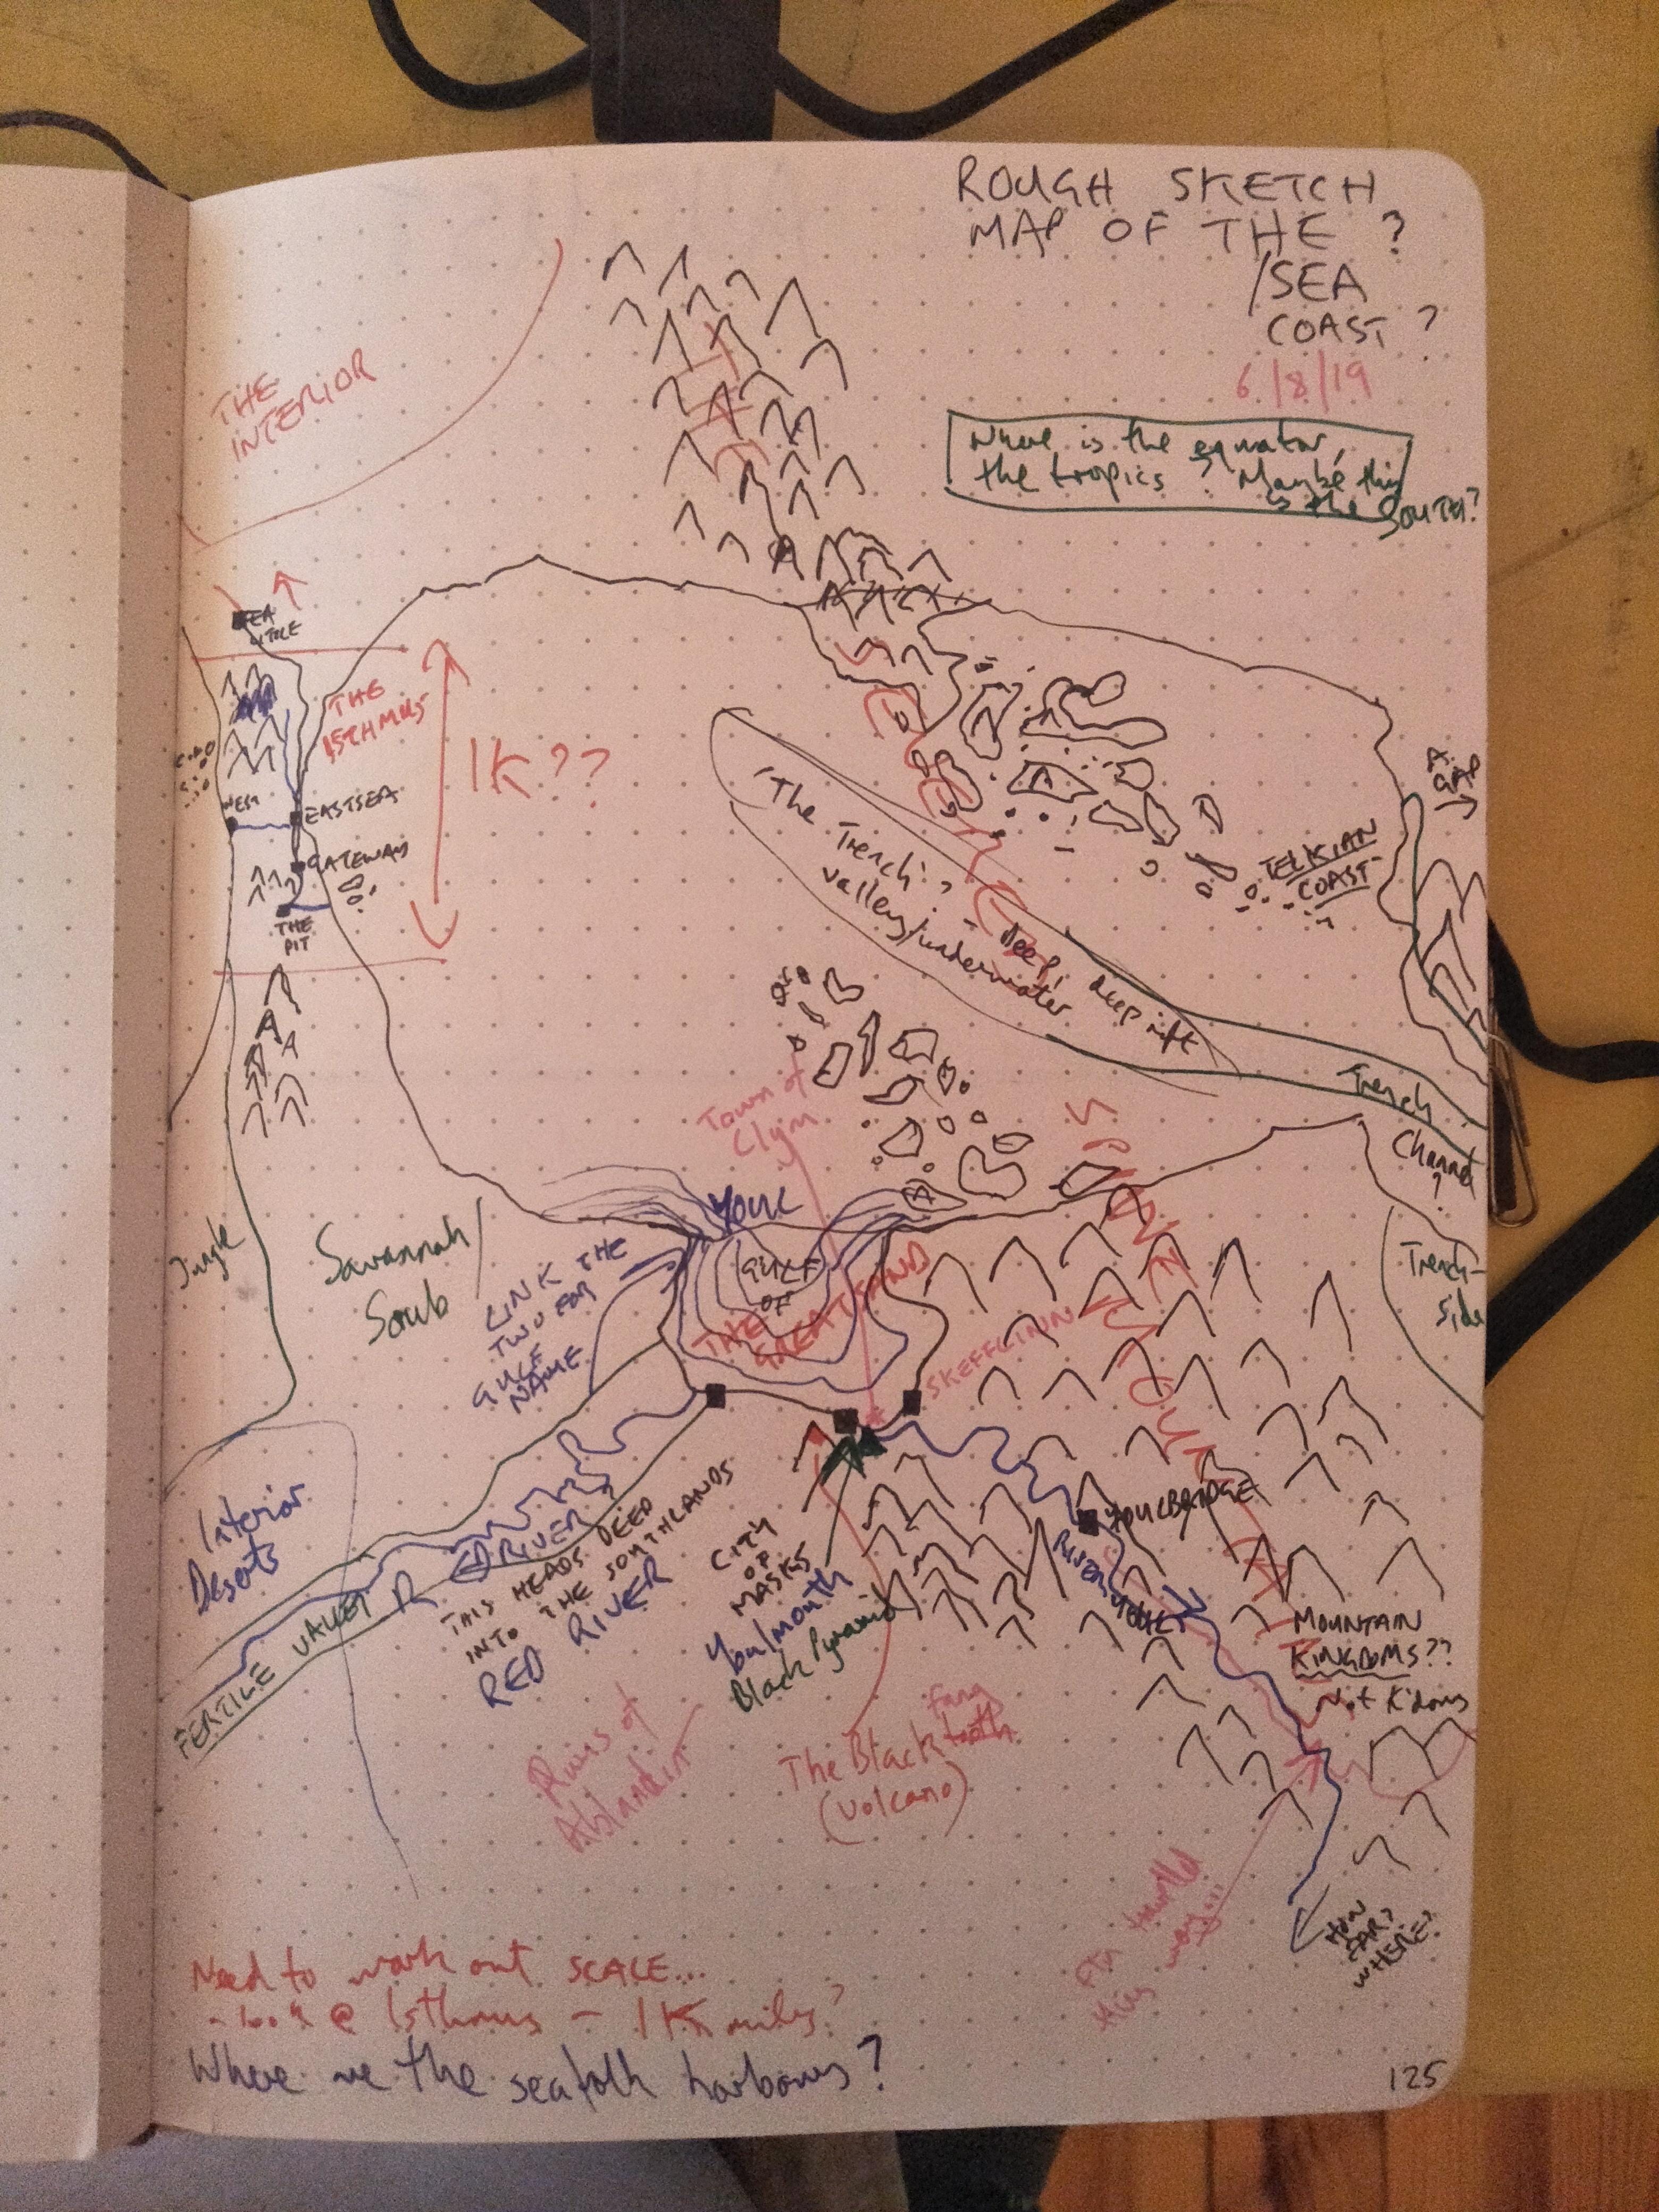 ROUGH SKETCH
MAP OF THE ?
/SEA
COAST ?
6/8/19
Where is the equator,
the tropics? Maybe this
is the SOUTH?
THE
INTERIOR
THE
ISTHMUS
1K??
WEST
EASTSEA
GATEWAY
THE
PIT
A
GAP
TELKIAN
COAST
The Trench? - Deep, deep rift
valley/underwater
Trench
Channel
?
Trench-
side
Town of
Clym
YOUL
GULF
OF
THE
GREATSAND
LINK THE
TWO FOR
GULF
NAME
Jungle
Savannah/
Scrub
SKEFFLINN
SPINE
Interior
Deserts
FERTILE VALLEY
RED RIVER
THIS HEADS DEEP
INTO THE SOUTHLANDS
RED RIVER
CITY
OF
MASKS
Youlmouth
Black Pyramid
YOULBRIDGE
RIVER YOUL
MOUNTAIN
KINGDOMS??
Not K'doms
Ruins of
fang
The Black tooth
(volcano)
this way...
HOW
FAR?
WHERE?
Need to work out SCALE...
@ Isthmus - 1K miles?
Where are the seafolk harbours?
125